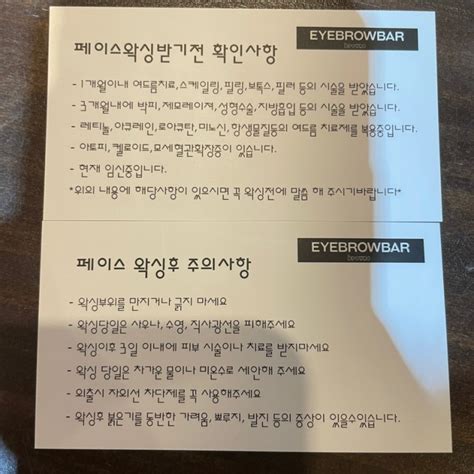 EYEBROWBAR
페이스왁싱받기전 확인사항
- 1개월이내 여드름치료,스케일링,필링,보톡스,필러 등의 시술을 받았습니다.
- 3개월내에 박피, 제모레이져, 성형수술, 지방흡입 등의 시술을 받았습니다.
- 레티놀, 아큐레인,로아큐탄, 미노신, 항생물질등의 여드름 치료제를 복용중입니다.
- 아토피, 켈로이드,모세혈관확장증이 있습니다.
- 현재 임신중입니다.
*위의 내용에 해당사항이 있으시면 꼭 왁싱전에 말씀 해 주시기바랍니다*
EYEBROWBAR
페이스 왁싱후 주의사항
- 왁싱부위를 만지거나 긁지 마세요
- 왁싱당일은 사우나, 수영, 직사광선을 피해주세요
- 왁싱이후 3일 이내에 피부 시술이나 치료를 받지마세요
- 왁싱 당일은 차가운 물이나 미온수로 세안해 주세요
- 외출시 자외선 차단제를 꼭 사용해주세요
- 왁싱후 붉은기를 동반한 가려움, 뾰루지, 발진 등의 증상이 있을수있습니다.